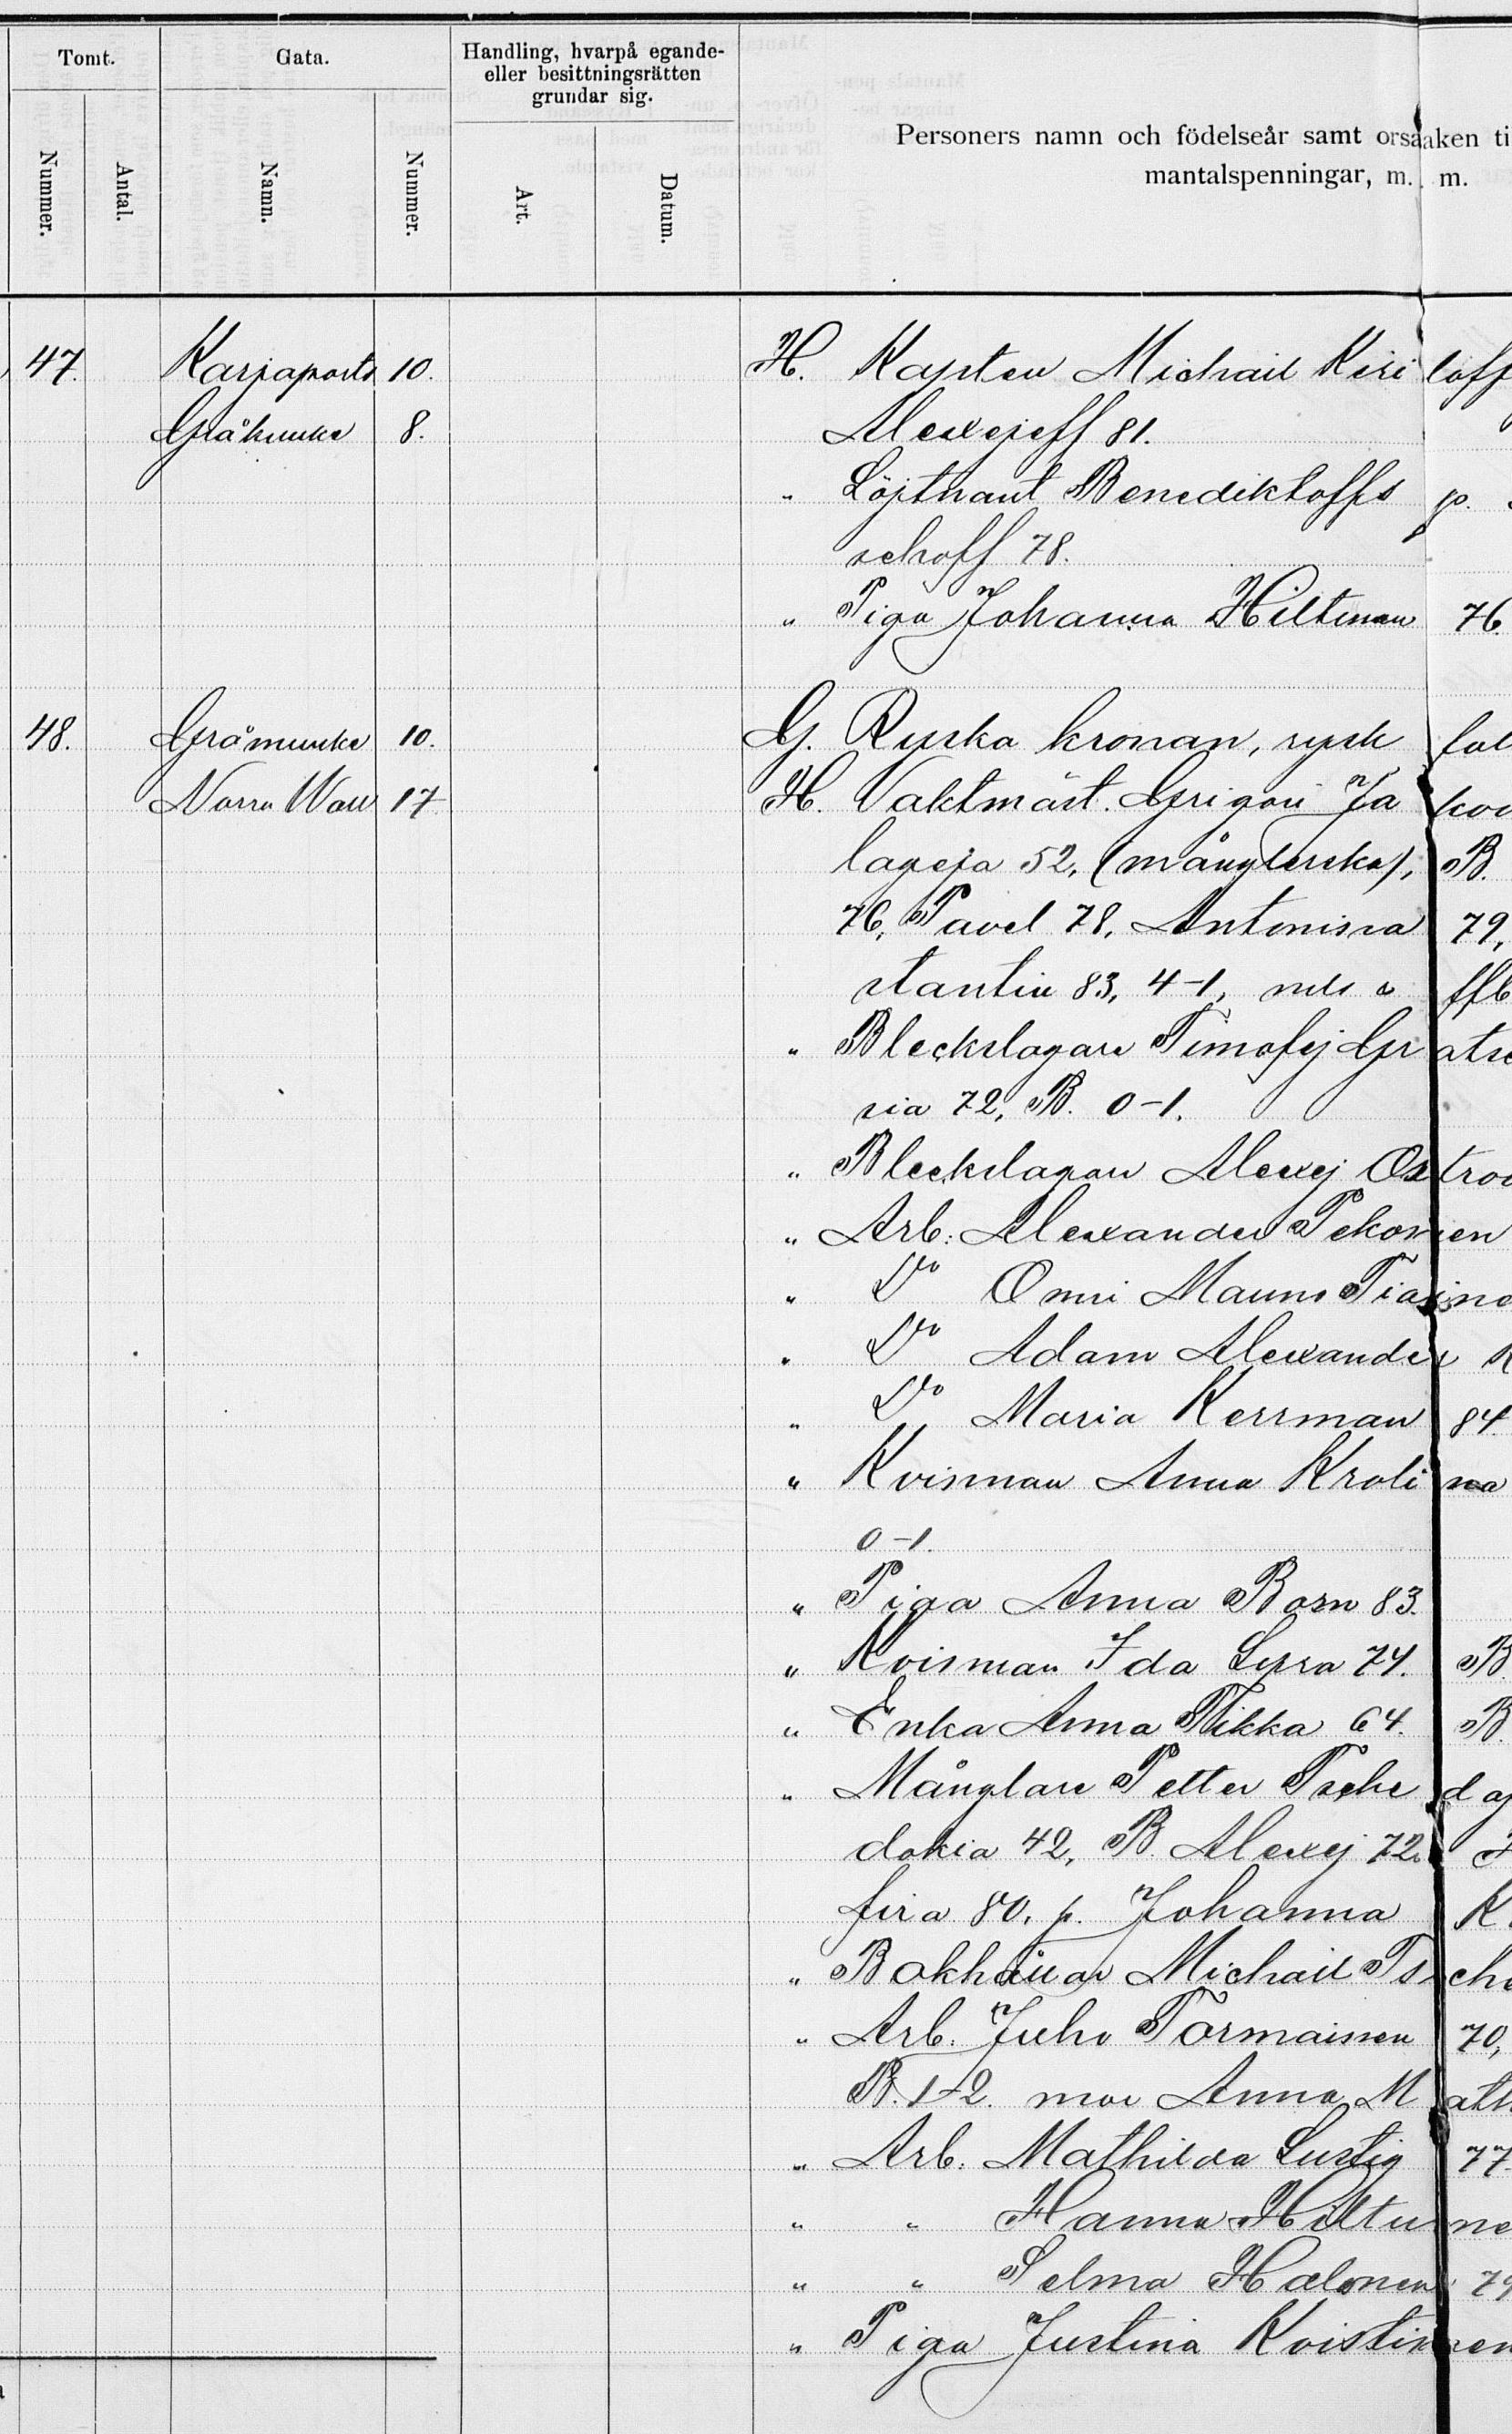 Tomt.
Gata.
Handling, hvarpå egande-
eller besittningsrätten
grundar sig.
Personers namn och födelseår samt orsaaken ti
mantalspenningar, m. m.
Nummer.
Antal.
Namn.
Nummer.
Art.
Datum.
47. Karjaports 10. H. Kapten Michail Kiri loff
Gråmunke 8. Alexejeff 81.
" Löjtnant Benediktoffs p.
schoff 78.
" Piga Johanna Hiltunen 76.
48. Gråmunke 10. G. Ryska kronan, rysk
Norra Wall 17. H. Vaktmäst. Grigori Ja kov
lageja 52, (månglerska), B.
76, Pavel 78, Antonina 79,
stantin 83, 4-1,
" Bleckslagare Timofej Gr atsc
ria 72, B. 0-1.
" Bleckslagare Alexej Os trov
" Arb. Alexander Pekonen
" Do Onni Mauno Tiaine
" Do Adam Alexander K
" Do Maria Kerrman 84
" Kvinnan Anna Kroli na
0-1.
" Piga Anna Born 83.
" Kvinnan Ida Lyra 74. B.
" Enka Anna Tikka 64. B.
" Månglare Petter Tsche
dokia 42, B. Alexej 72,
fira 80. p. Johanna K
" Bokhållar Michail Ts che
" Arb. Juho Tormainen 70,
B. 1-2. mor Anna M ath
" Arb. Mathilda Lustig 77.
" " Hanna Hiltu ne
" " Selma Halonen 79
" Piga Justina Kvistinen